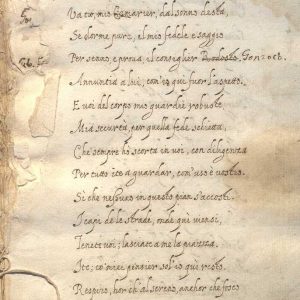 Va tù, mio camarier, dal sonno desta,
Se dorme pure, el mio fedele e saggio
Per senno, e proua, el consiglier Gonzoch.
Annuntia à lui, com'io qui fuor l'aspetto.
E uoi del corpo mio guardie robuste
Mia securtà, per quella fede schietta,
Che sempre hò scorta in uoi, con diligenza
Per tutto ite à guardar, com'uso è uostro.
Si che nessuno in questo pian s'accosti.
I capi de le strade, onde quì uiensi,
Tenete uoi; lasciate à me la piazza.
Ite: co' miei pensier sol'io quì resto.
Respiro, hor ch'al sereno, anchor che fosco